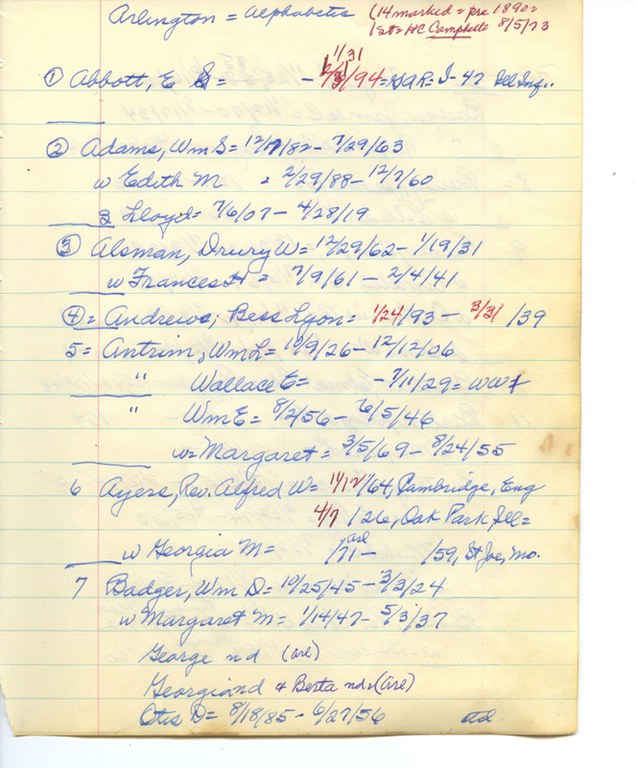 Arlington = Alphabetic (14 marked = pre 1890 =
1st = HC Campbell 8/5/73
1/31
① Abbott, E S = - /94 = GAR = I-42 Ill Inf..
② Adams, Wm S = 12/17/82 - 7/29/63
w Edith M = 2/29/88 - 12/7/60
3 Lloyd = 7/6/07 - 4/28/19
③ Alsman, Drury W = 12/29/62 - 1/19/31
w Frances H = 7/9/61 - 2/4/41
④ = Andrews, Bess Lyon = 1/24/93 - 3/31/39
5 = Antrim, Wm L = 10/9/26 - 12/12/06
" Wallace E = - 7/11/29 = WW I
" Wm E = 8/2/56 - 6/5/46
w = Margaret = 3/5/69 - 8/24/55
6 Ayers, Rev. Alfred W = 11/12/64, Cambridge, Eng
4/7/26, Oak Park, Ill =
w Georgia M = /71 - arl /59, St Joe, Mo.
7 Badger, Wm D = 10/25/45 - 3/3/24
w Margaret M = 1/14/47 - 5/3/37
George nd (arl)
Georgia nd & Berta nd (arl)
Otis D = 8/18/85 - 6/27/56